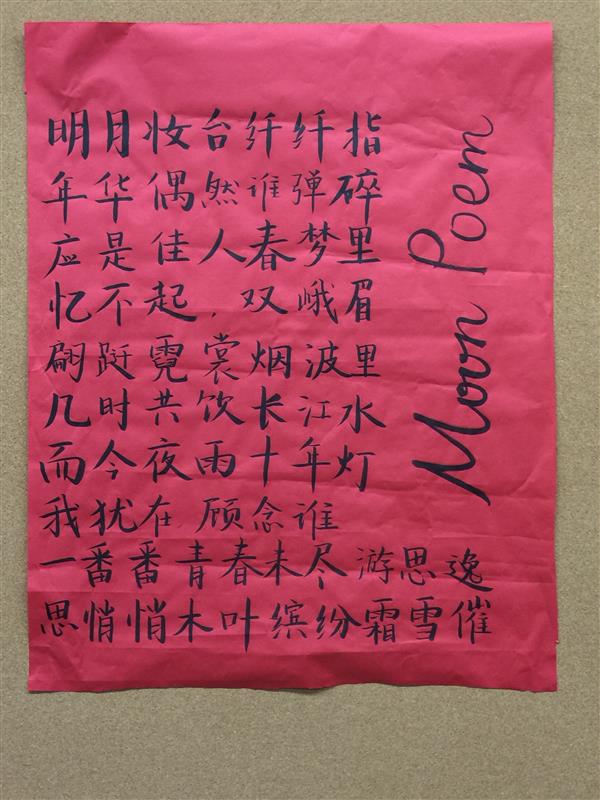 明月妆台纤纤指
年华偶然谁弹碎
应是佳人春梦里
忆不起，双峨眉
翩跹霓裳烟波里
几时共饮长江水
而今夜雨十年灯
我犹在顾念谁
一番番青春未尽游思逸
思悄悄木叶缤纷霜雪催
Moon Poem